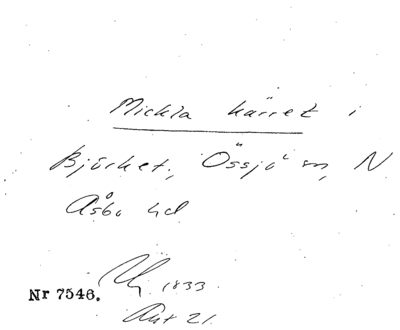 Mickla kärret i
Björket, Össjö sn, N
Åsbo hd
1833
Akt 21.
Nr 7546.